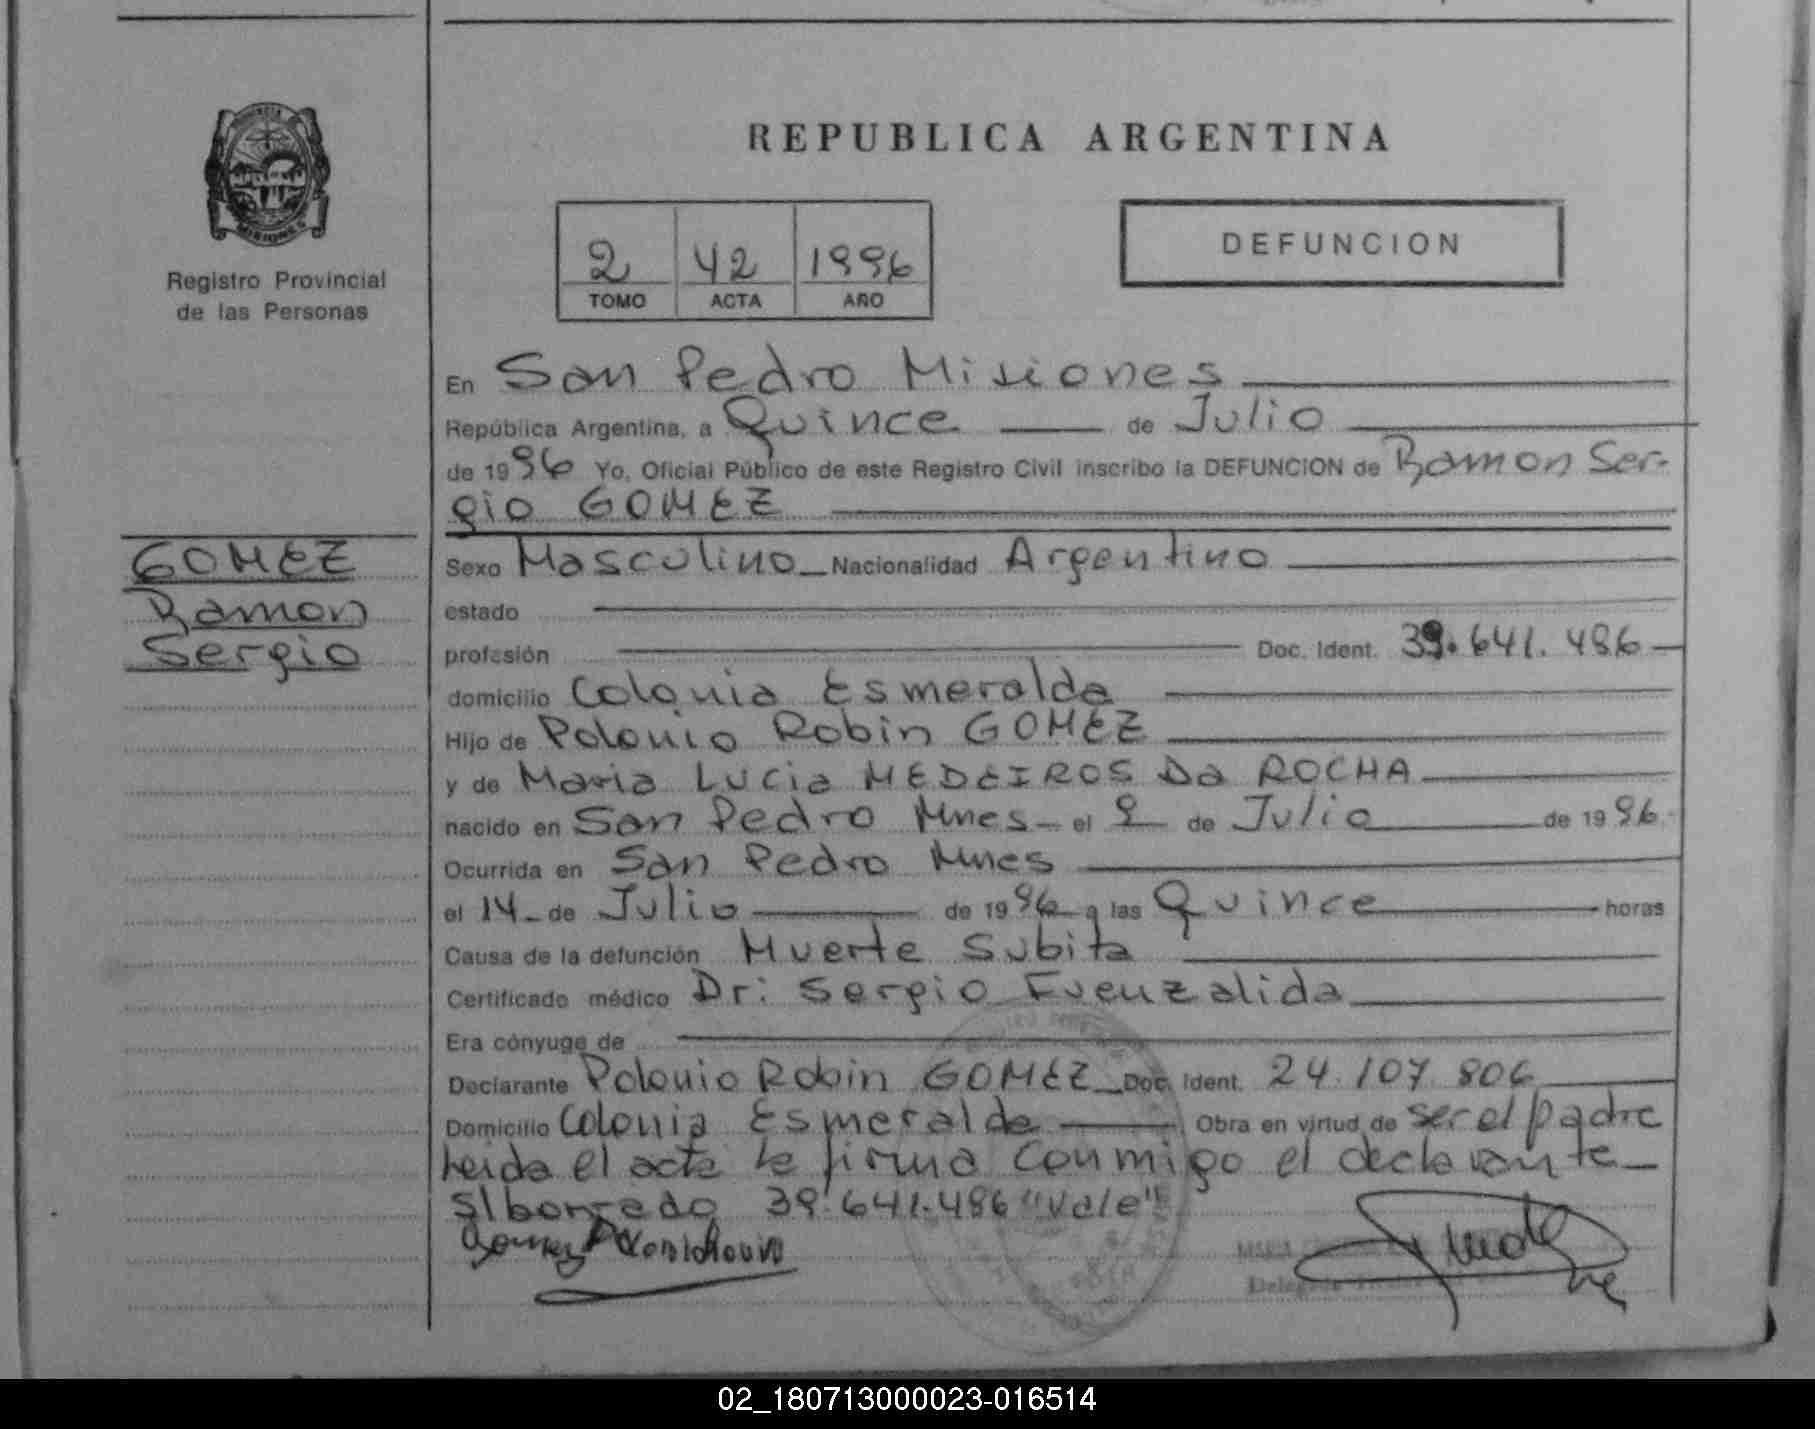 REPUBLICA ARGENTINA
MISIONES
Registro Provincial
de las Personas
2 42 1996
TOMO ACTA AÑO
DEFUNCION
En San Pedro Misiones
República Argentina, a Quince de Julio
de 1996 Yo, Oficial Público de este Registro Civil inscribo la DEFUNCION de Ramon Ser-
gio GOMEZ
GOMEZ
Ramon
Sergio
Sexo Masculino Nacionalidad Argentino
estado
profesión Doc. Ident. 39.641.486
domicilio Colonia Esmeralda
Hijo de Polonio Robin GOMEZ
y de Maria Lucia MEDEIROS Da ROCHA
nacido en San Pedro Mnes el 9 de Julio de 1996
Ocurrida en San Pedro Mnes
el 14 de Julio de 1996 a las Quince horas
Causa de la defunción Muerte Subita
Certificado médico Dr: Sergio Fuenzalida
Era cónyuge de
Declarante Polonio Robin GOMEZ Doc. Ident. 24.107.806
Domicilio Colonia Esmeralda Obra en virtud de ser el padre
leida el acta la firma conmigo el declarante
S/borrado 39.641.486 "Vale"
02_180713000023-016514